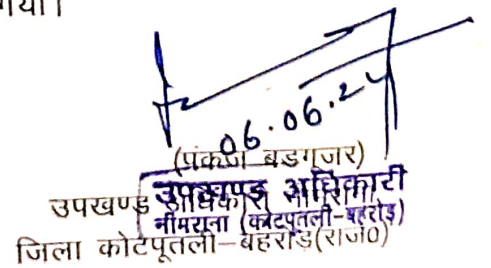 गया।
06.06.24
(पंकज बडगूजर)
उपखण्ड अधिकारी नीमराना
उपखण्ड अधिकारी
नीमराना (कोटपूतली-बहरोड़)
जिला कोटपूतली-बहरोड़(राज0)